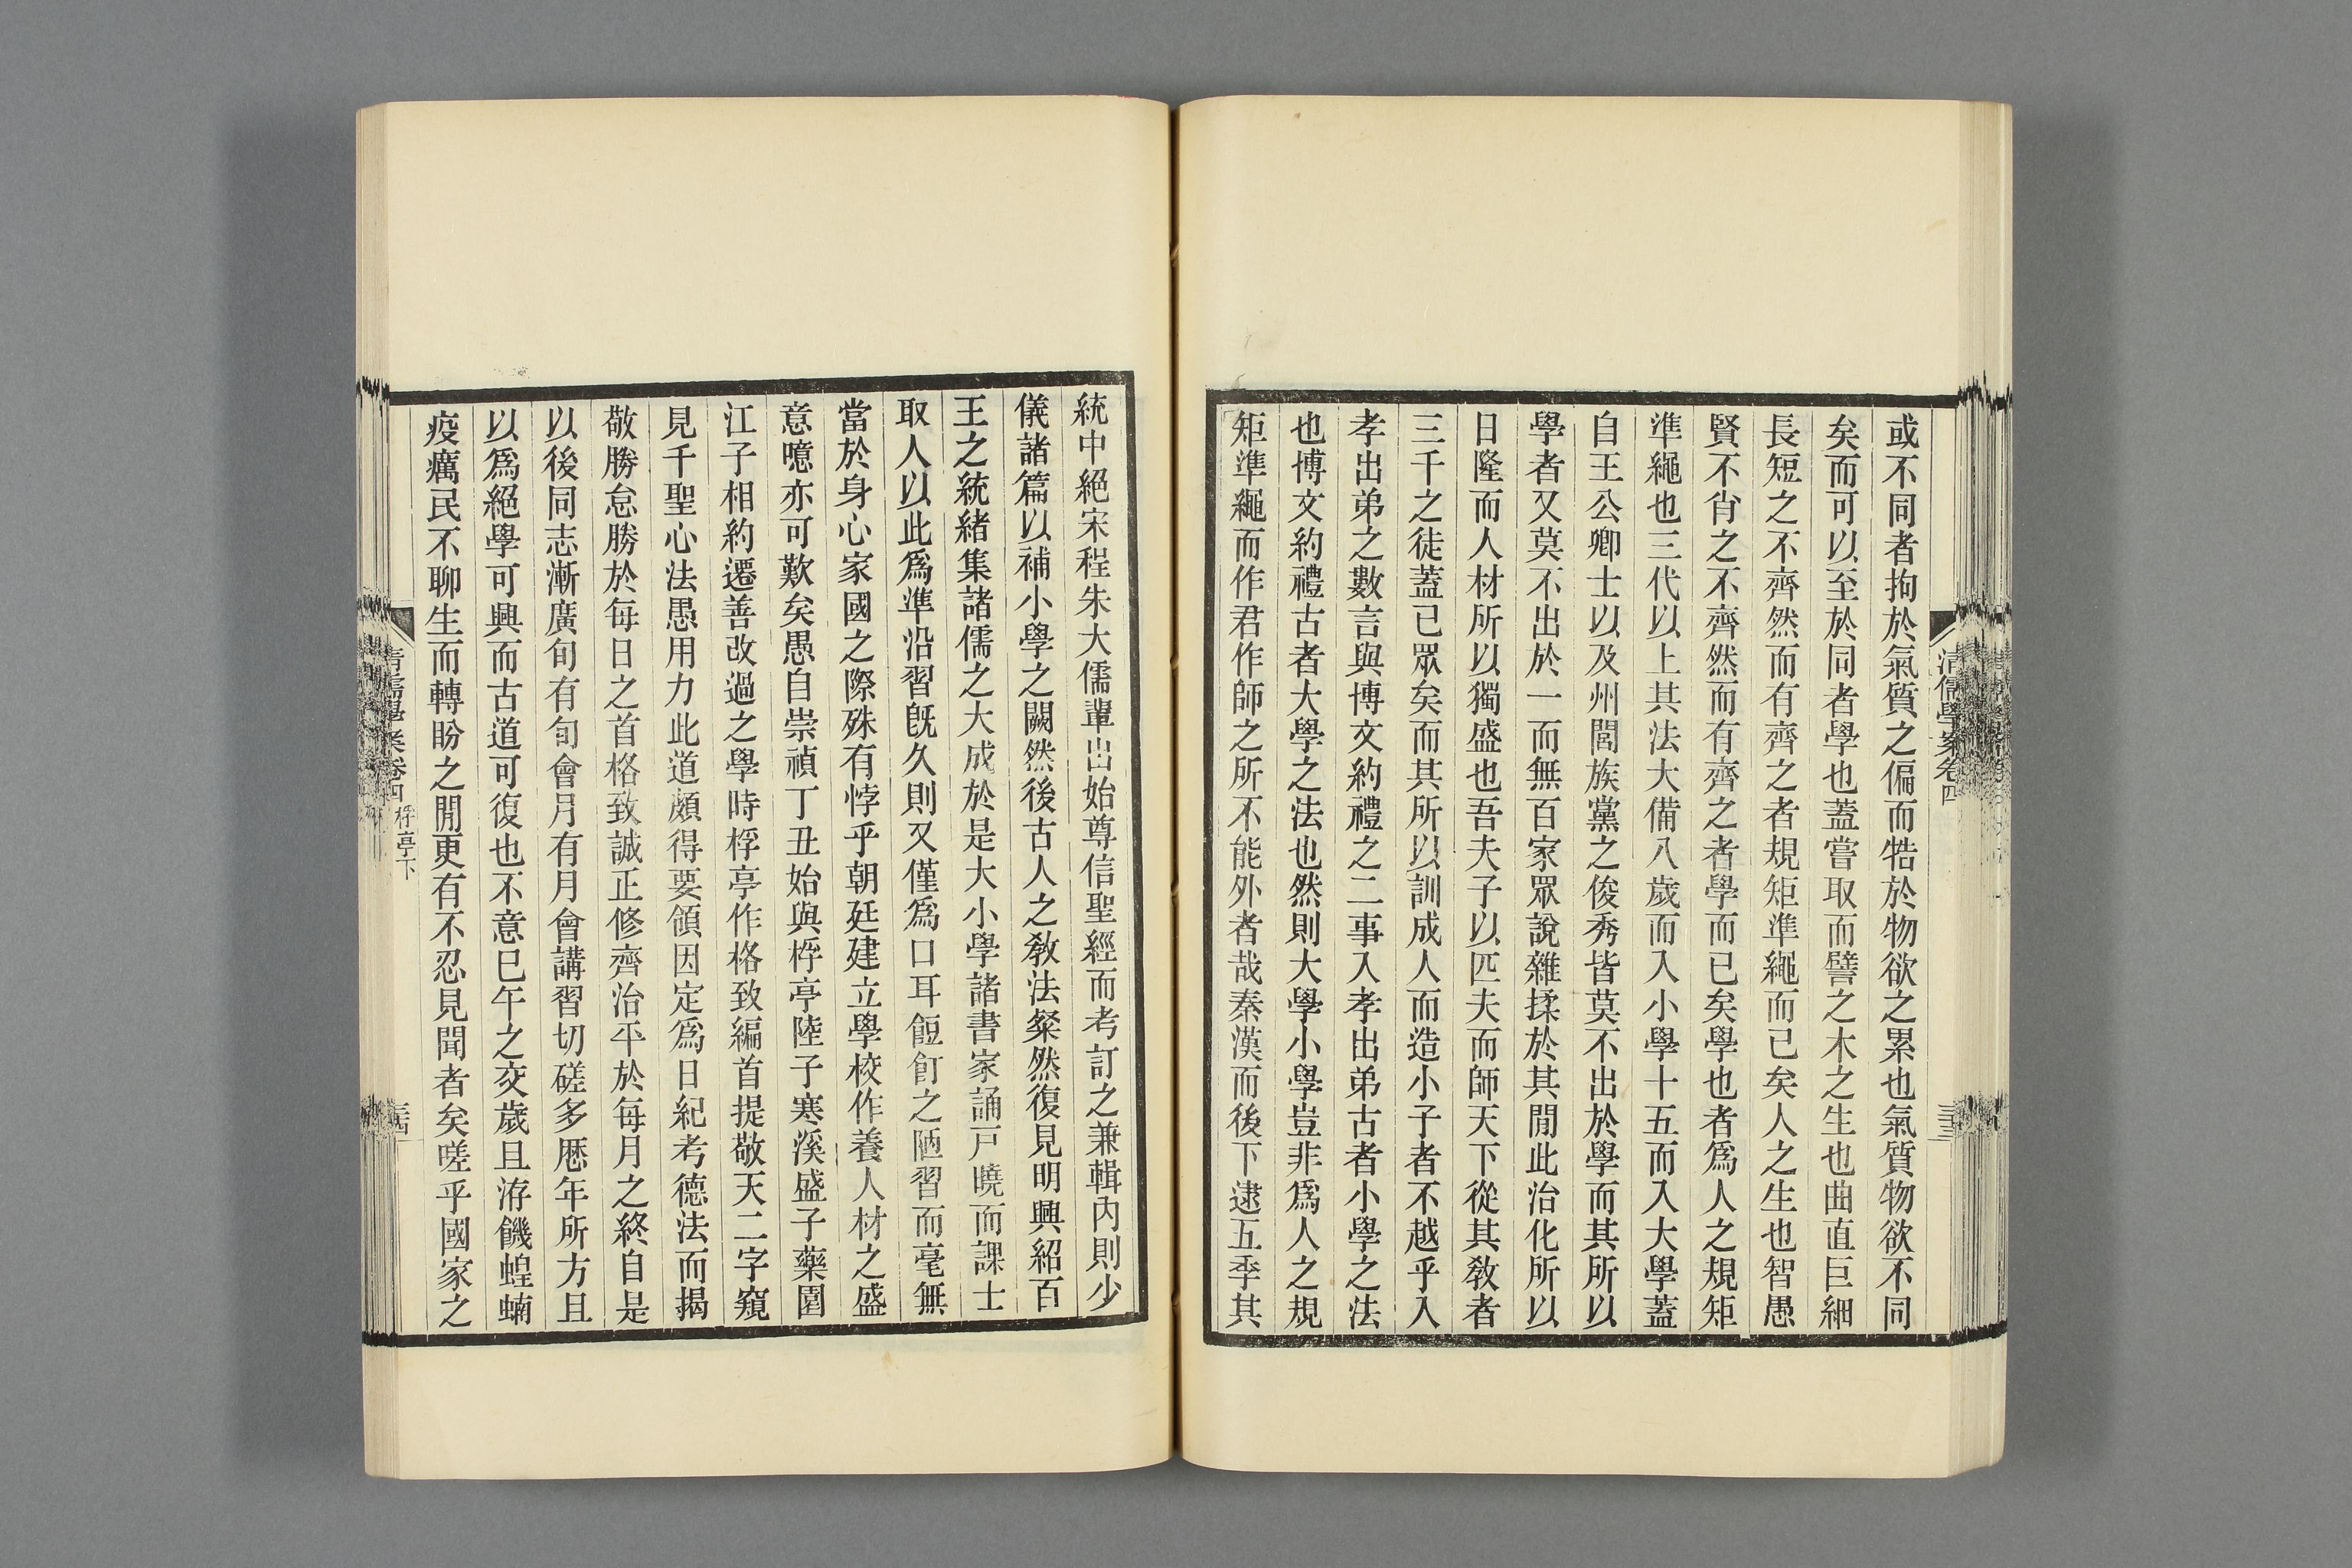 清儒學案卷四
三十三
或不同者拘於氣質之偏而牿於物欲之累也氣質物欲不同
矣而可以至於同者學也蓋嘗取而譬之木之生也曲直巨細
長短之不齊然而有齊之者規矩準繩而已矣人之生也智愚
賢不肖之不齊然而有齊之者學而已矣學也者爲人之規矩
準繩也三代以上其法大備八歲而入小學十五而入大學蓋
自王公卿士以及州閭族黨之俊秀皆莫不出於學而其所以
學者又莫不出於一而無百家眾說雜揉於其閒此治化所以
日隆而人材所以獨盛也吾夫子以匹夫而師天下從其敎者
三千之徒蓋已眾矣而其所以訓成人而造小子者不越乎入
孝出弟之數言與博文約禮之二事入孝出弟古者小學之法
也博文約禮古者大學之法也然則大學小學豈非爲人之規
矩準繩而作君作師之所不能外者哉秦漢而後下逮五季其
統中絕宋程朱大儒輩出始尊信聖經而考訂之兼輯內則少
儀諸篇以補小學之闕然後古人之敎法粲然復見明興紹百
王之統緒集諸儒之大成於是大小學諸書家誦戸曉而課士
取人以此爲準沿習既久則又僅爲口耳餖飣之陋習而毫無
當於身心家國之際殊有悖乎朝廷建立學校作養人材之盛
意噫亦可歎矣愚自崇禎丁丑始與桴亭陸子寒溪盛子藥園
江子相約遷善改過之學時桴亭作格致編首提敬天二字窺
見千聖心法愚用力此道頗得要領因定爲日紀考德法而揭
敬勝怠勝於每日之首格致誠正修齊治平於每月之終自是
以後同志漸廣旬有旬會月有月會講習切磋多歷年所方且
以爲絕學可興而古道可復也不意巳午之交歲且洊饑蝗蝻
疫癘民不聊生而轉盼之閒更有不忍見聞者矣嗟乎國家之
清儒學案卷四 桴亭下
三十四